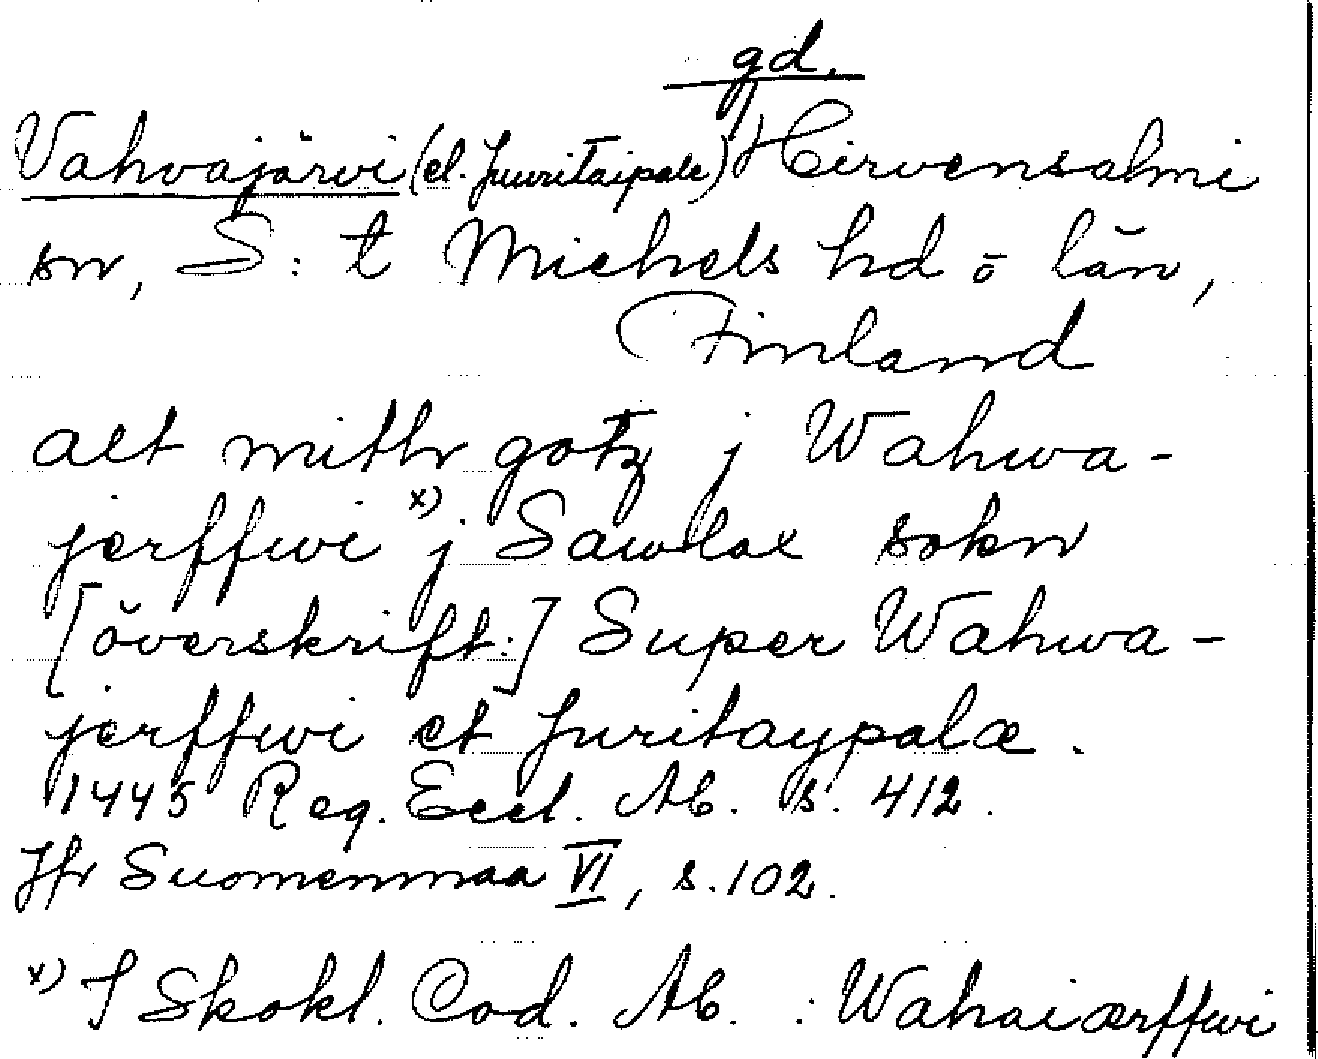 gd.
Vahvajärvi (el. Juuritaipale) Hirvensalmi
sn, S:t Michels hd o län,
Finland
alt mith gotz j Wahwa-
jerffwi x) j Sawlax sokn
[överskrift:] Super Wahwa-
jerffwi et Juritaypalæ.
1445 Reg. Eccl. Ab. s. 412.
Jfr Suomenmaa VI, s. 102.
x) I Skokl. Cod. Ab. : Wahaiærffwi